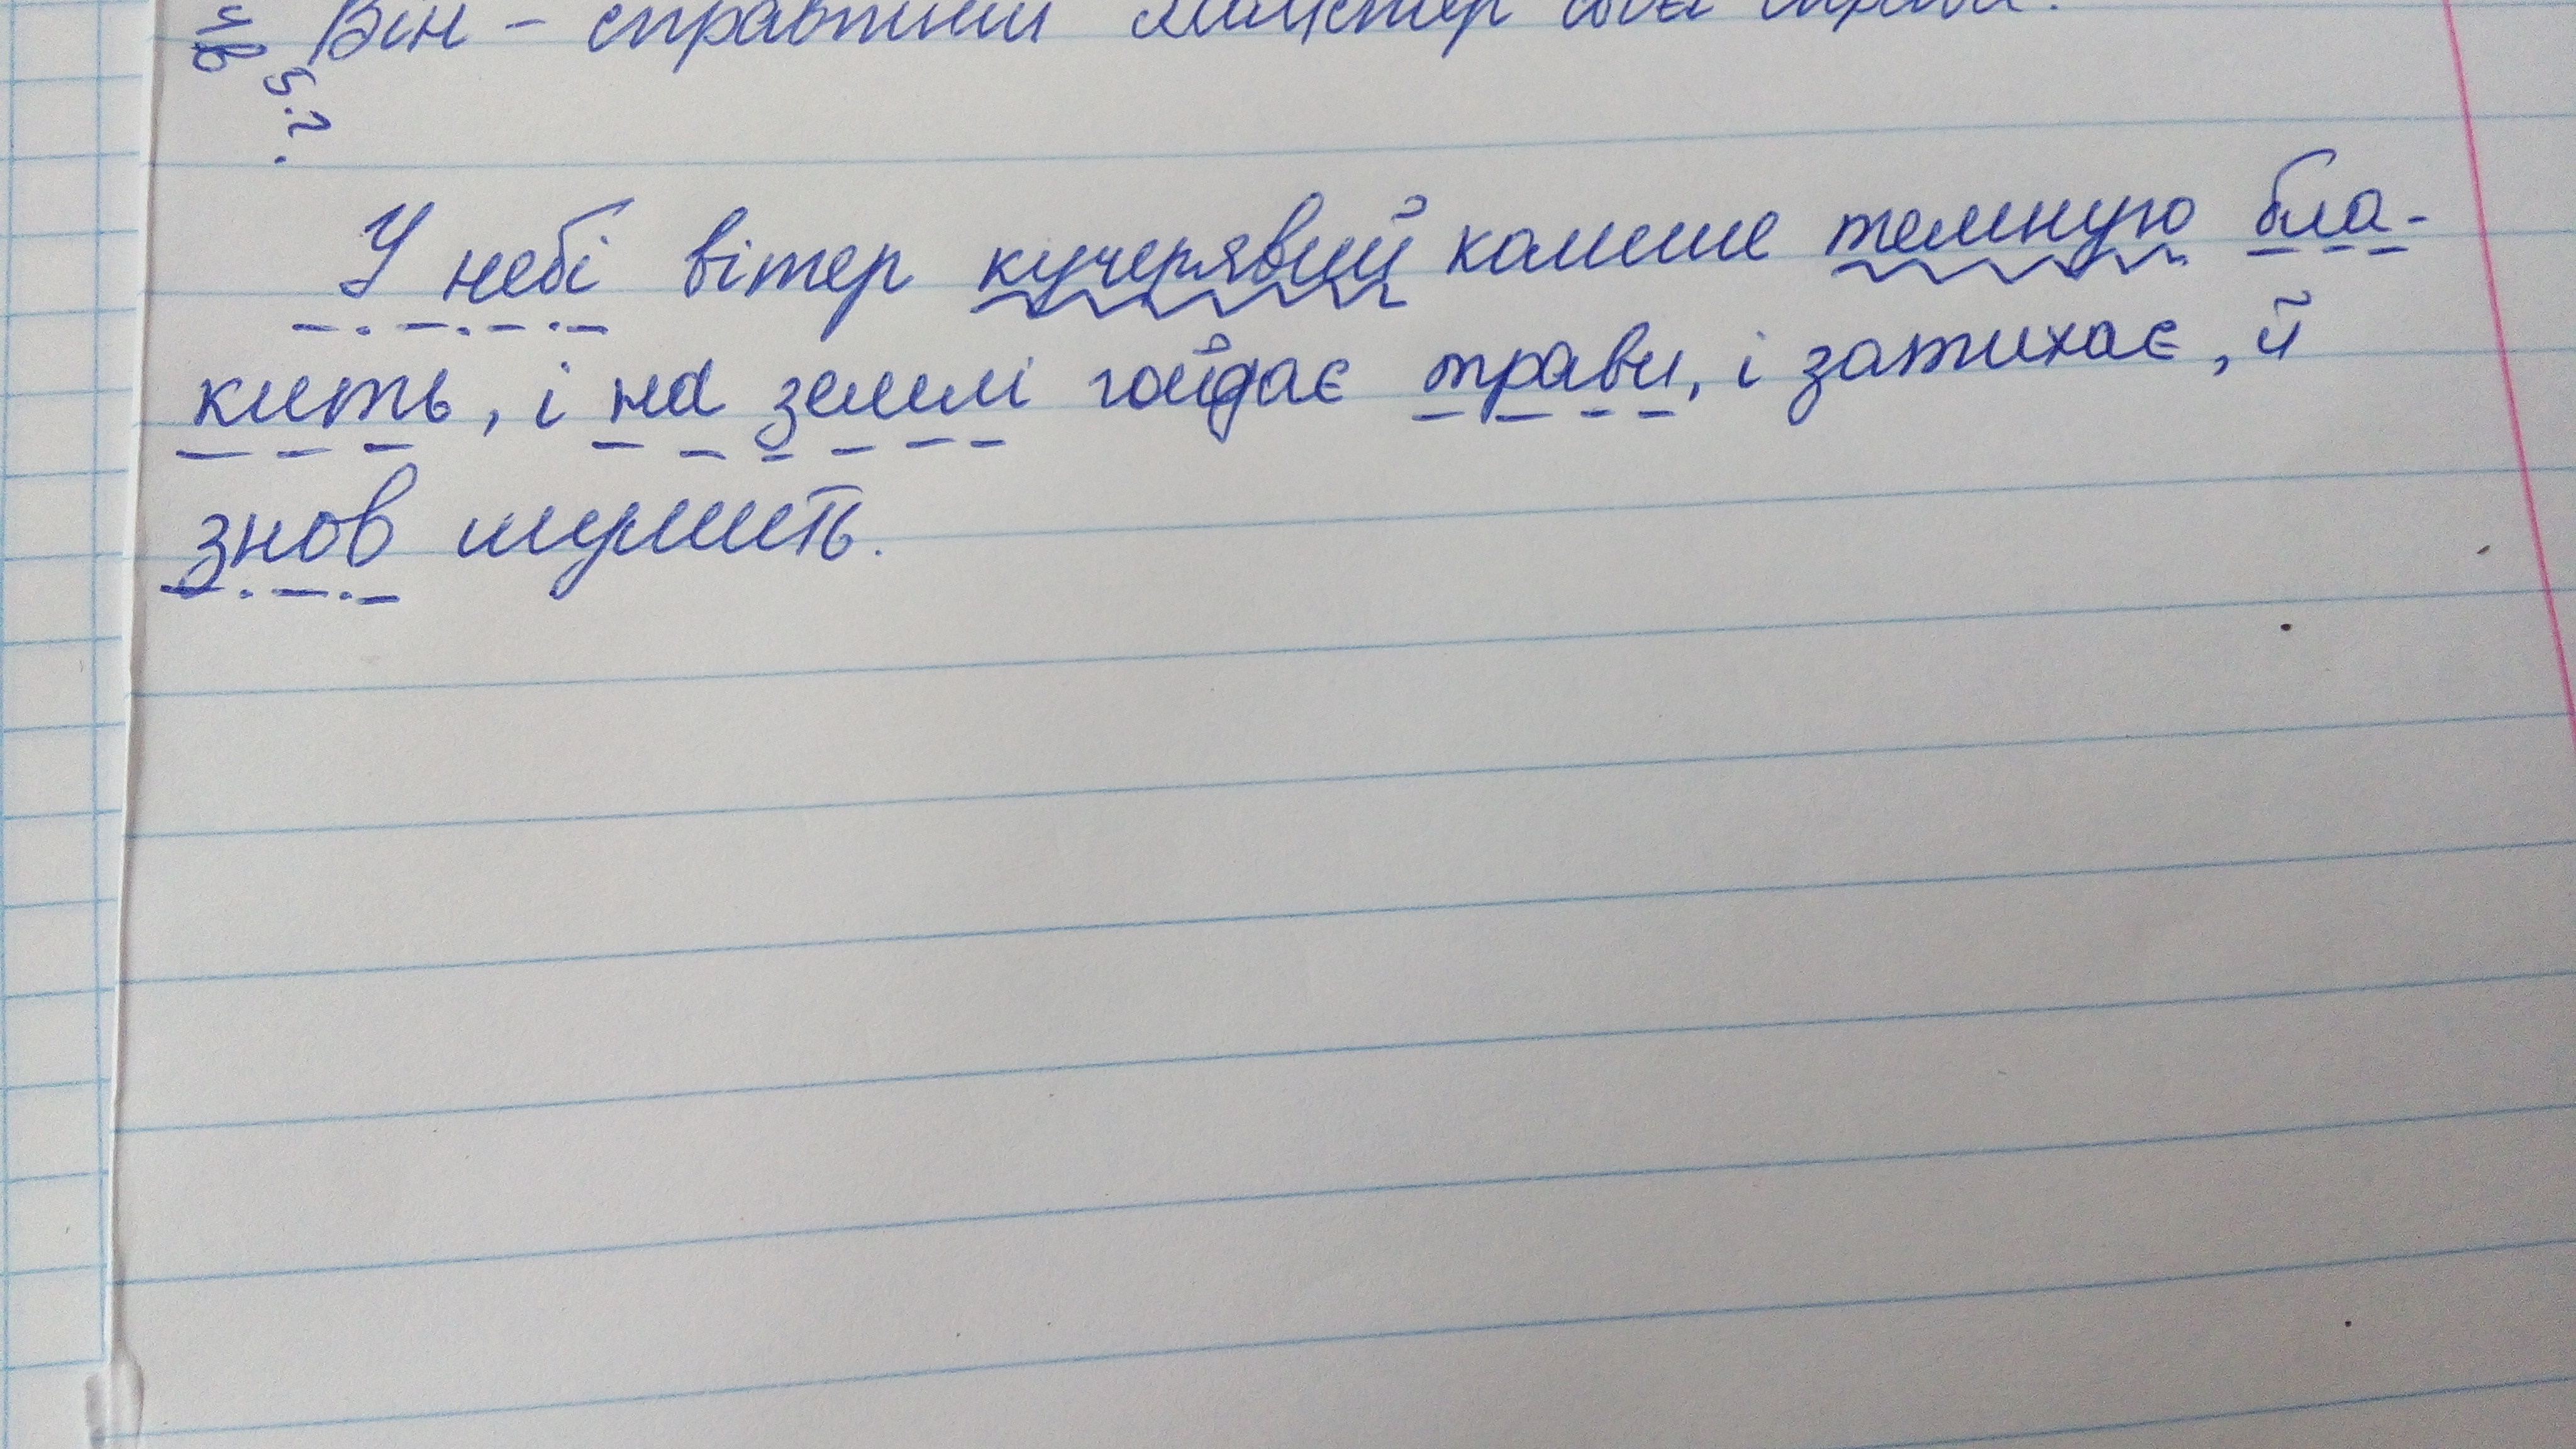 Він - справжній майстер своєї справи.
У небі вітер кучерявий колише темную бла-
кить, і на землі гойдає трави, і затихає, й
знов шумить.